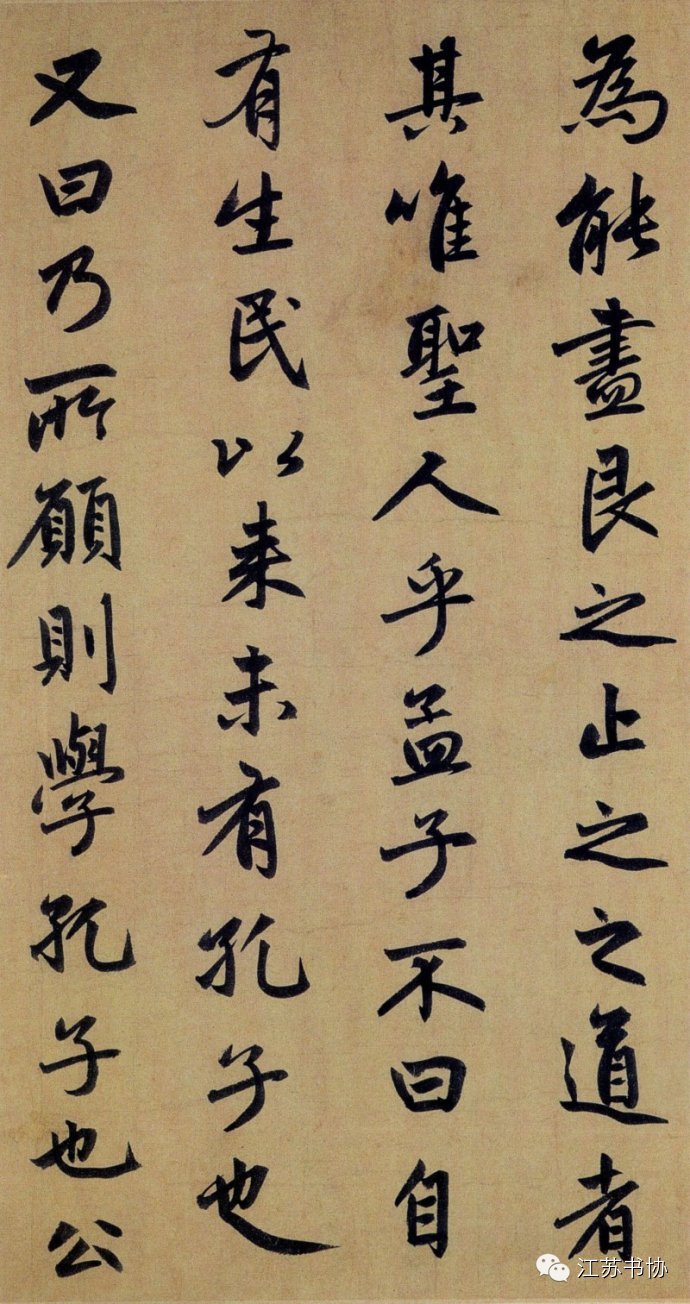 為能盡艮之止之之道者
其唯聖人乎孟子不曰自
有生民以来未有孔子也
又曰乃所願則學孔子也公
江苏书协